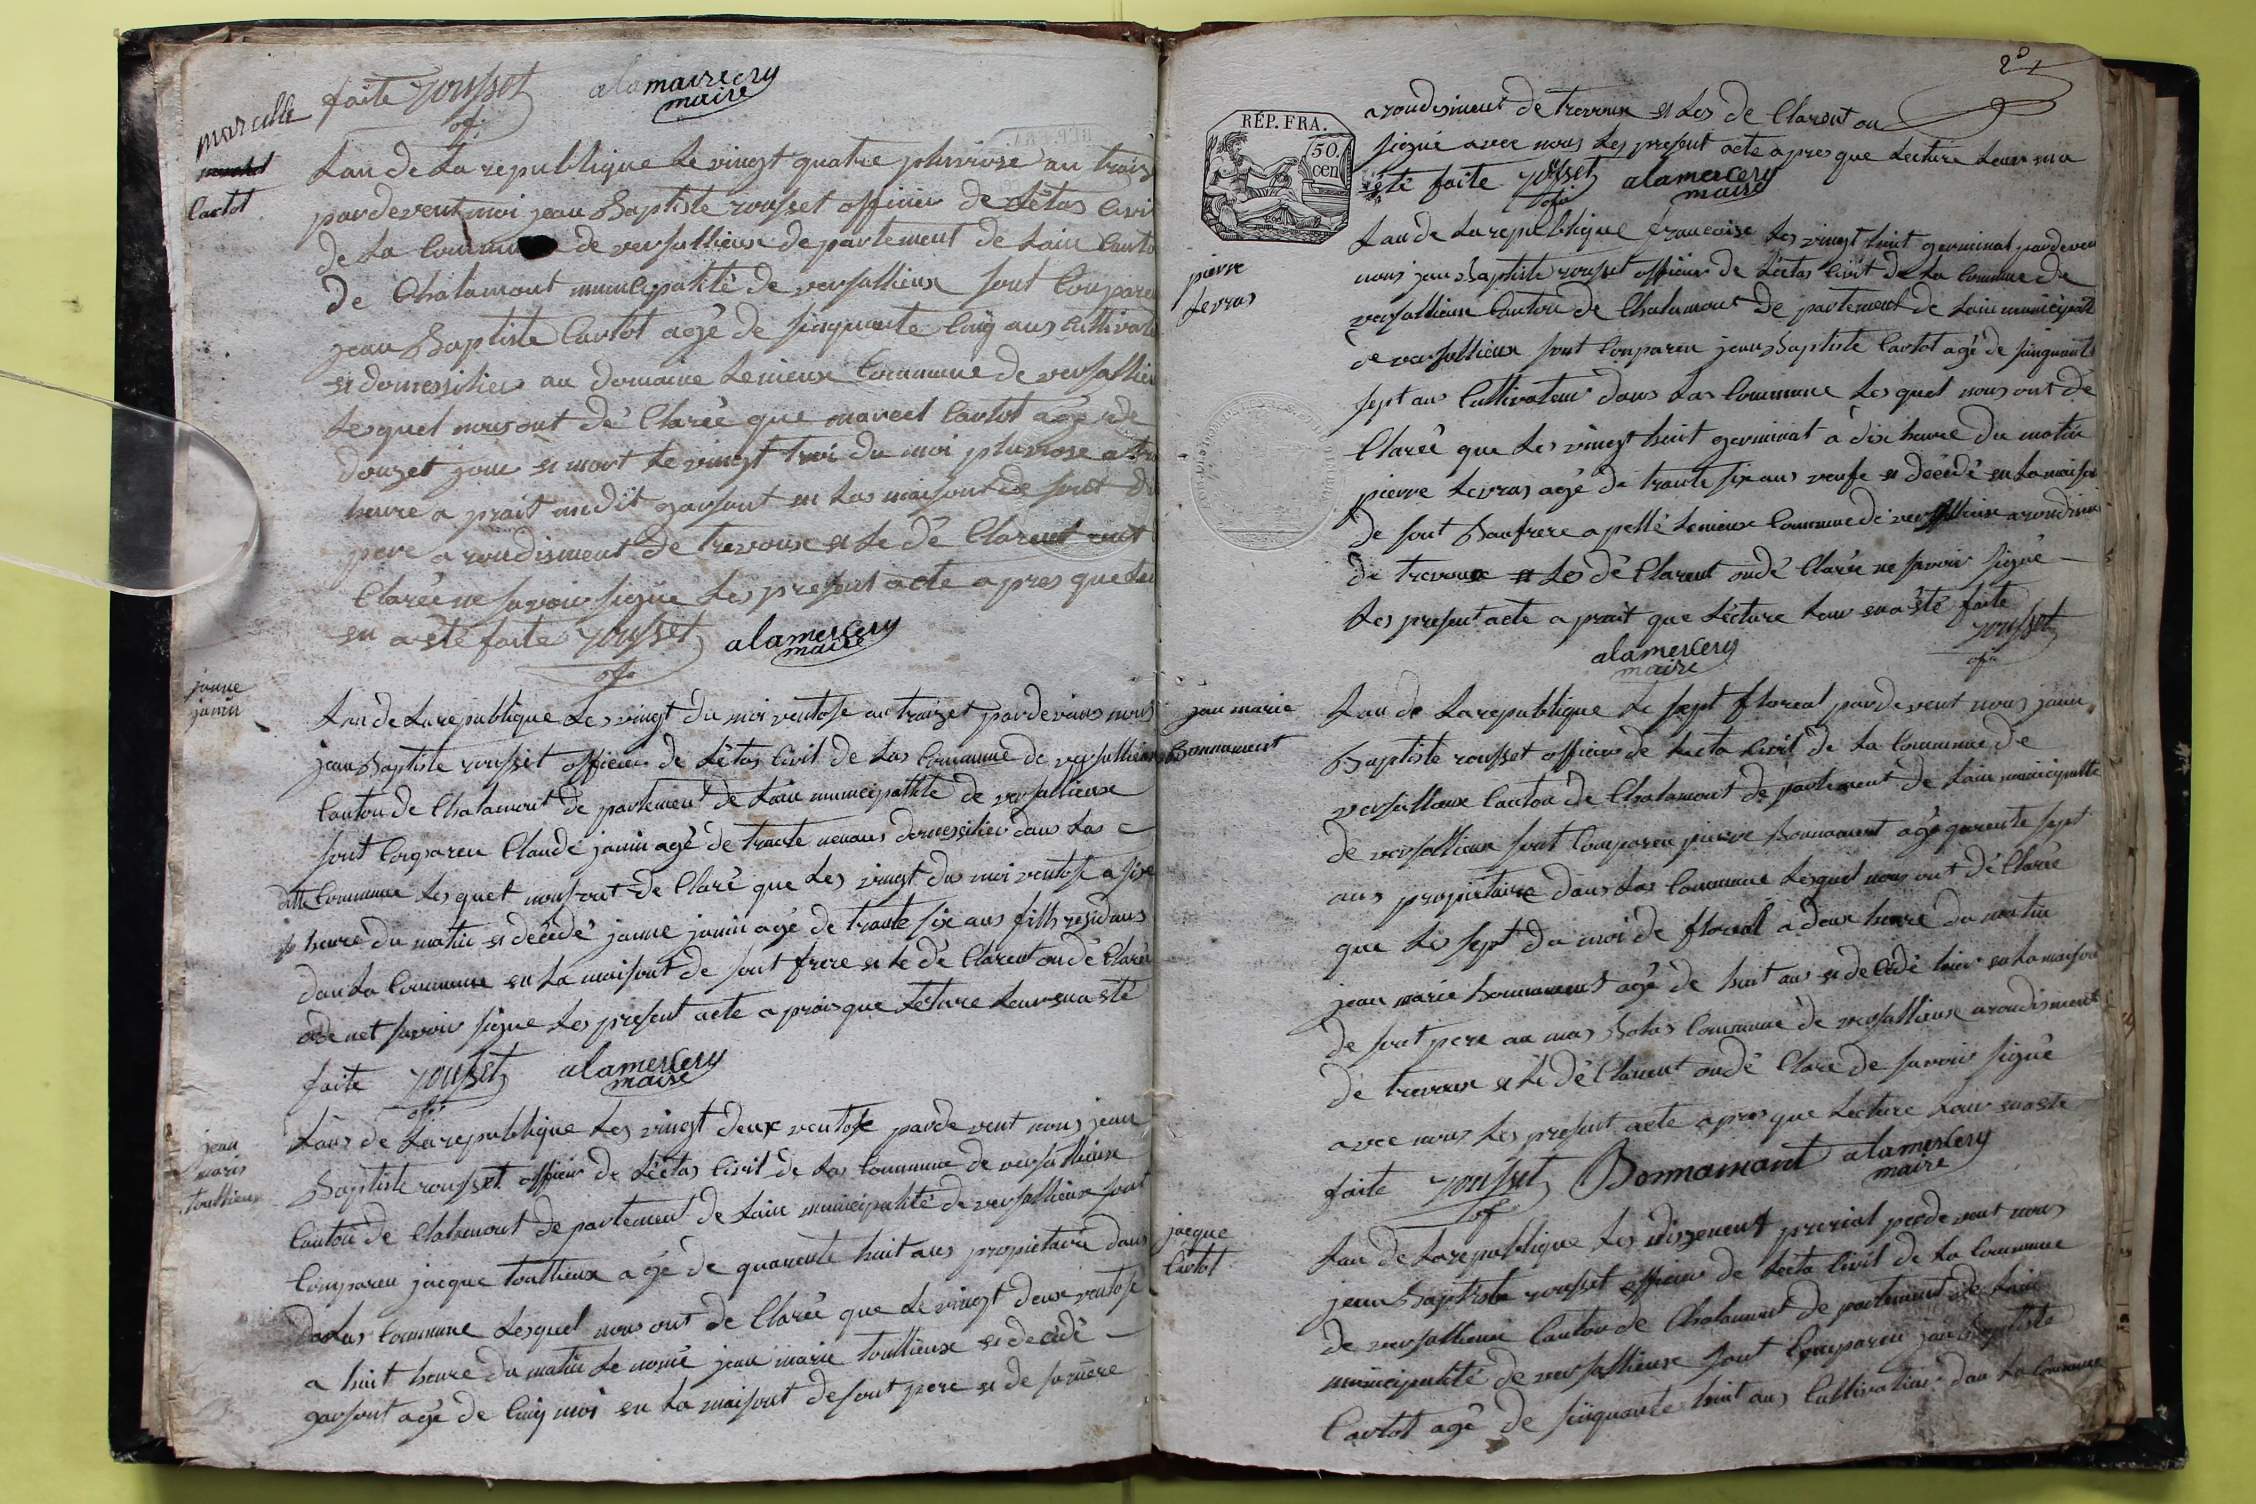 faite rousset alamercery
of maire
marcelle
cartot
Lan de La republique Le vingt quatre pluviose an traiz
pardevent moi jean Baptiste rousset officier de Létas Civi
de La Commune de versallieux departement de Lain Canto
De Chalamont municipalité de versallieux sont Conparu
jean Baptiste Cartot agé de sinquante Cinq ans Cultivate
et domessilier au domaine Lemieux Commune de versallieu
Lesquel nous ont dé Claréé que marcel Cartot agé de
douzet jour et mort Le vingt troi du moi pluviose a
heure a prait midit garsont en Las maisont de sont
pere a rondisment De trevoux et Le dé Clarent ont
Claréé ne savoir signé Les presant acte apres que Lec
en a été faite rousset alamercery
of maire
janne
janin
Lan de La republique Les vingt du moi ventose an traizet pardevans nous
jean Baptiste rousset officier de Létas Civil de Las Commune de versallieux
Canton de Chalamont de partement de Lain municipallité de versallieux
sont Conpareu Claude janin agé de trante neu ans domessilier dans Las
ditte Commune Les quel nous ont de Claré que Les vingt du moi ventose a six
heure du matin et décédé janne janin agé de trante six ans fille residans
dan La Commune en La maisont de sont frere et Le dé Clarent on dé Claréé
de net savoir signe Les present acte aprais que Lecture Leur en a été
faite rousset alamercery
of maire
jean
marie
toullieux
Lans de La republique Les vingt deux ventose pardevent nous jean
Baptiste rousset officier de Létas Civil de Las Commune de versallieux
Canton de Chalamont de partement de Lain municipalité de versallieux sont
Conpareu jacque toullieux agé de quarente huit ans propietaire dans
Las Commune Lesquel nous ont de Claréé que Le vingt deux ventose
a huit heure du matin Le nomé jean marie toullieux et décédé
garsont agé de Cinq moi en La maisont de sont pere et de sa mère
RÉP. FRA.
50.
cen
arondisment de trevoux et Les de Clarent on
signé avec nous Les present acte apres que Lecture Leur en a
été faite rousset alamercery
of maire
pierre
Levras
Lan de La republique francaise Les vingt huit germinal pardeven
nous jean Baptiste rousset officier de Létas Civil de La Commune de
versallieux Canton de Chalamont de partement de Lain municipall
de versallieux sont Conpareu jean Baptiste Cartot agé de sinquante
sept ans Cultivateur dans Las Commune Les quel nous ont dé
Claréé que Les vingt huit germinal a dix heure du matin
pierre Levras agé de trante six ans veufe et décédé en La maison
de sont Baufrere apellé Lemieux Commune de versallieux arondism
de trevoux et Les dé Clarent on dé Claréé ne savoir signé
Les present acte aprait que Lécture Leur en a été faite
rousset
alamercery of
maire
jan marie
Bonnament
Lan de La republique Le sept floreal pardevent nous jean
Baptiste rousset officier de Leeta Civil de La Commune de
versallieux Canton de Chalamont de partement de Lain municipallite
de versallieux sont Conpareu pierre Bonnament agé quarente sept
ans propietaire dans Las Commune Lesquel nous ont dé Claréé
que Les sept du moi de floreal a deux heure du matin
jean marie Bonnament agé de huit ans et décédé hier en La maison
de sont pere au mas Bolas Commune de versallieux arondisment
de trevoux et Le dé Clarent on dé Clare de savoir signé
avec nous Les present acte apres que Lecture Leur en a ete
faite rousset Bonnamant alamercery
of maire
jacque
Cartot
Lan de La republique Les dizeneuf prerial pardevent nous
jean Baptiste rousset officier de Leeta Civil de La Commune
de versallieux Canton de Chalamont de partement de Lain
municipalité de versallieux sont Conpareu jean Baptiste
Cartot agé de sinquante huit ans Cultivateur dan La Commune